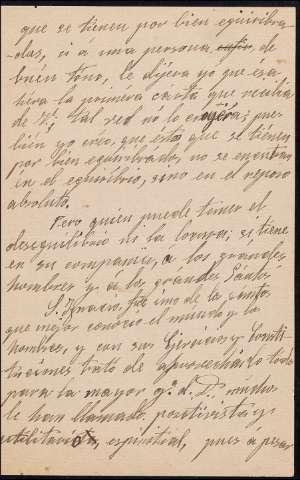 que se tienen por bien equilibra-
-das, si a una persona de
buen tono, le dijera yo que ésta
era la primera carta que recibia
de V., tal vez no lo creyera; pues
bién yo creo, que éstos que se tienen
por bien equilibrados, no se encuentran
en el equilibrio, sino en el reposo
absoluto.
Pero quien puede temer el
desequilibrio ni la locura, si tiene
en su compañia, a los grandes
hombres y á los grandes Santos
S. Ignacio, fué uno de los santos
que mejor conoció el mundo y los
hombres, y con sus Ejercicios y Consti-
tuciones trató de aprovecharlo todo
para la mayor gª. d. D., muchos
le han llamado, positivista y
utilitarista, espiritual, pues á pesar